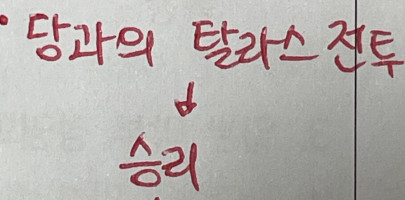 · 당과의 탈라스 전투
↓
승리